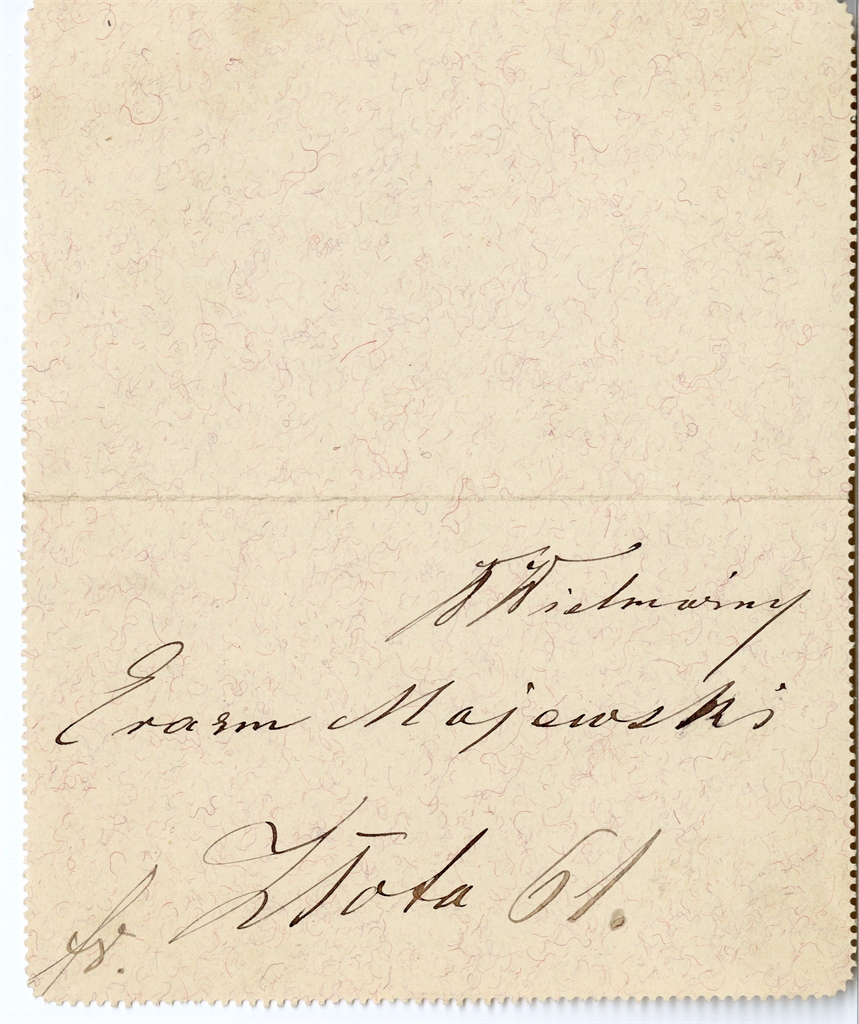 W Wielmożny
Erazm Majewski
Złota 61.
fr.